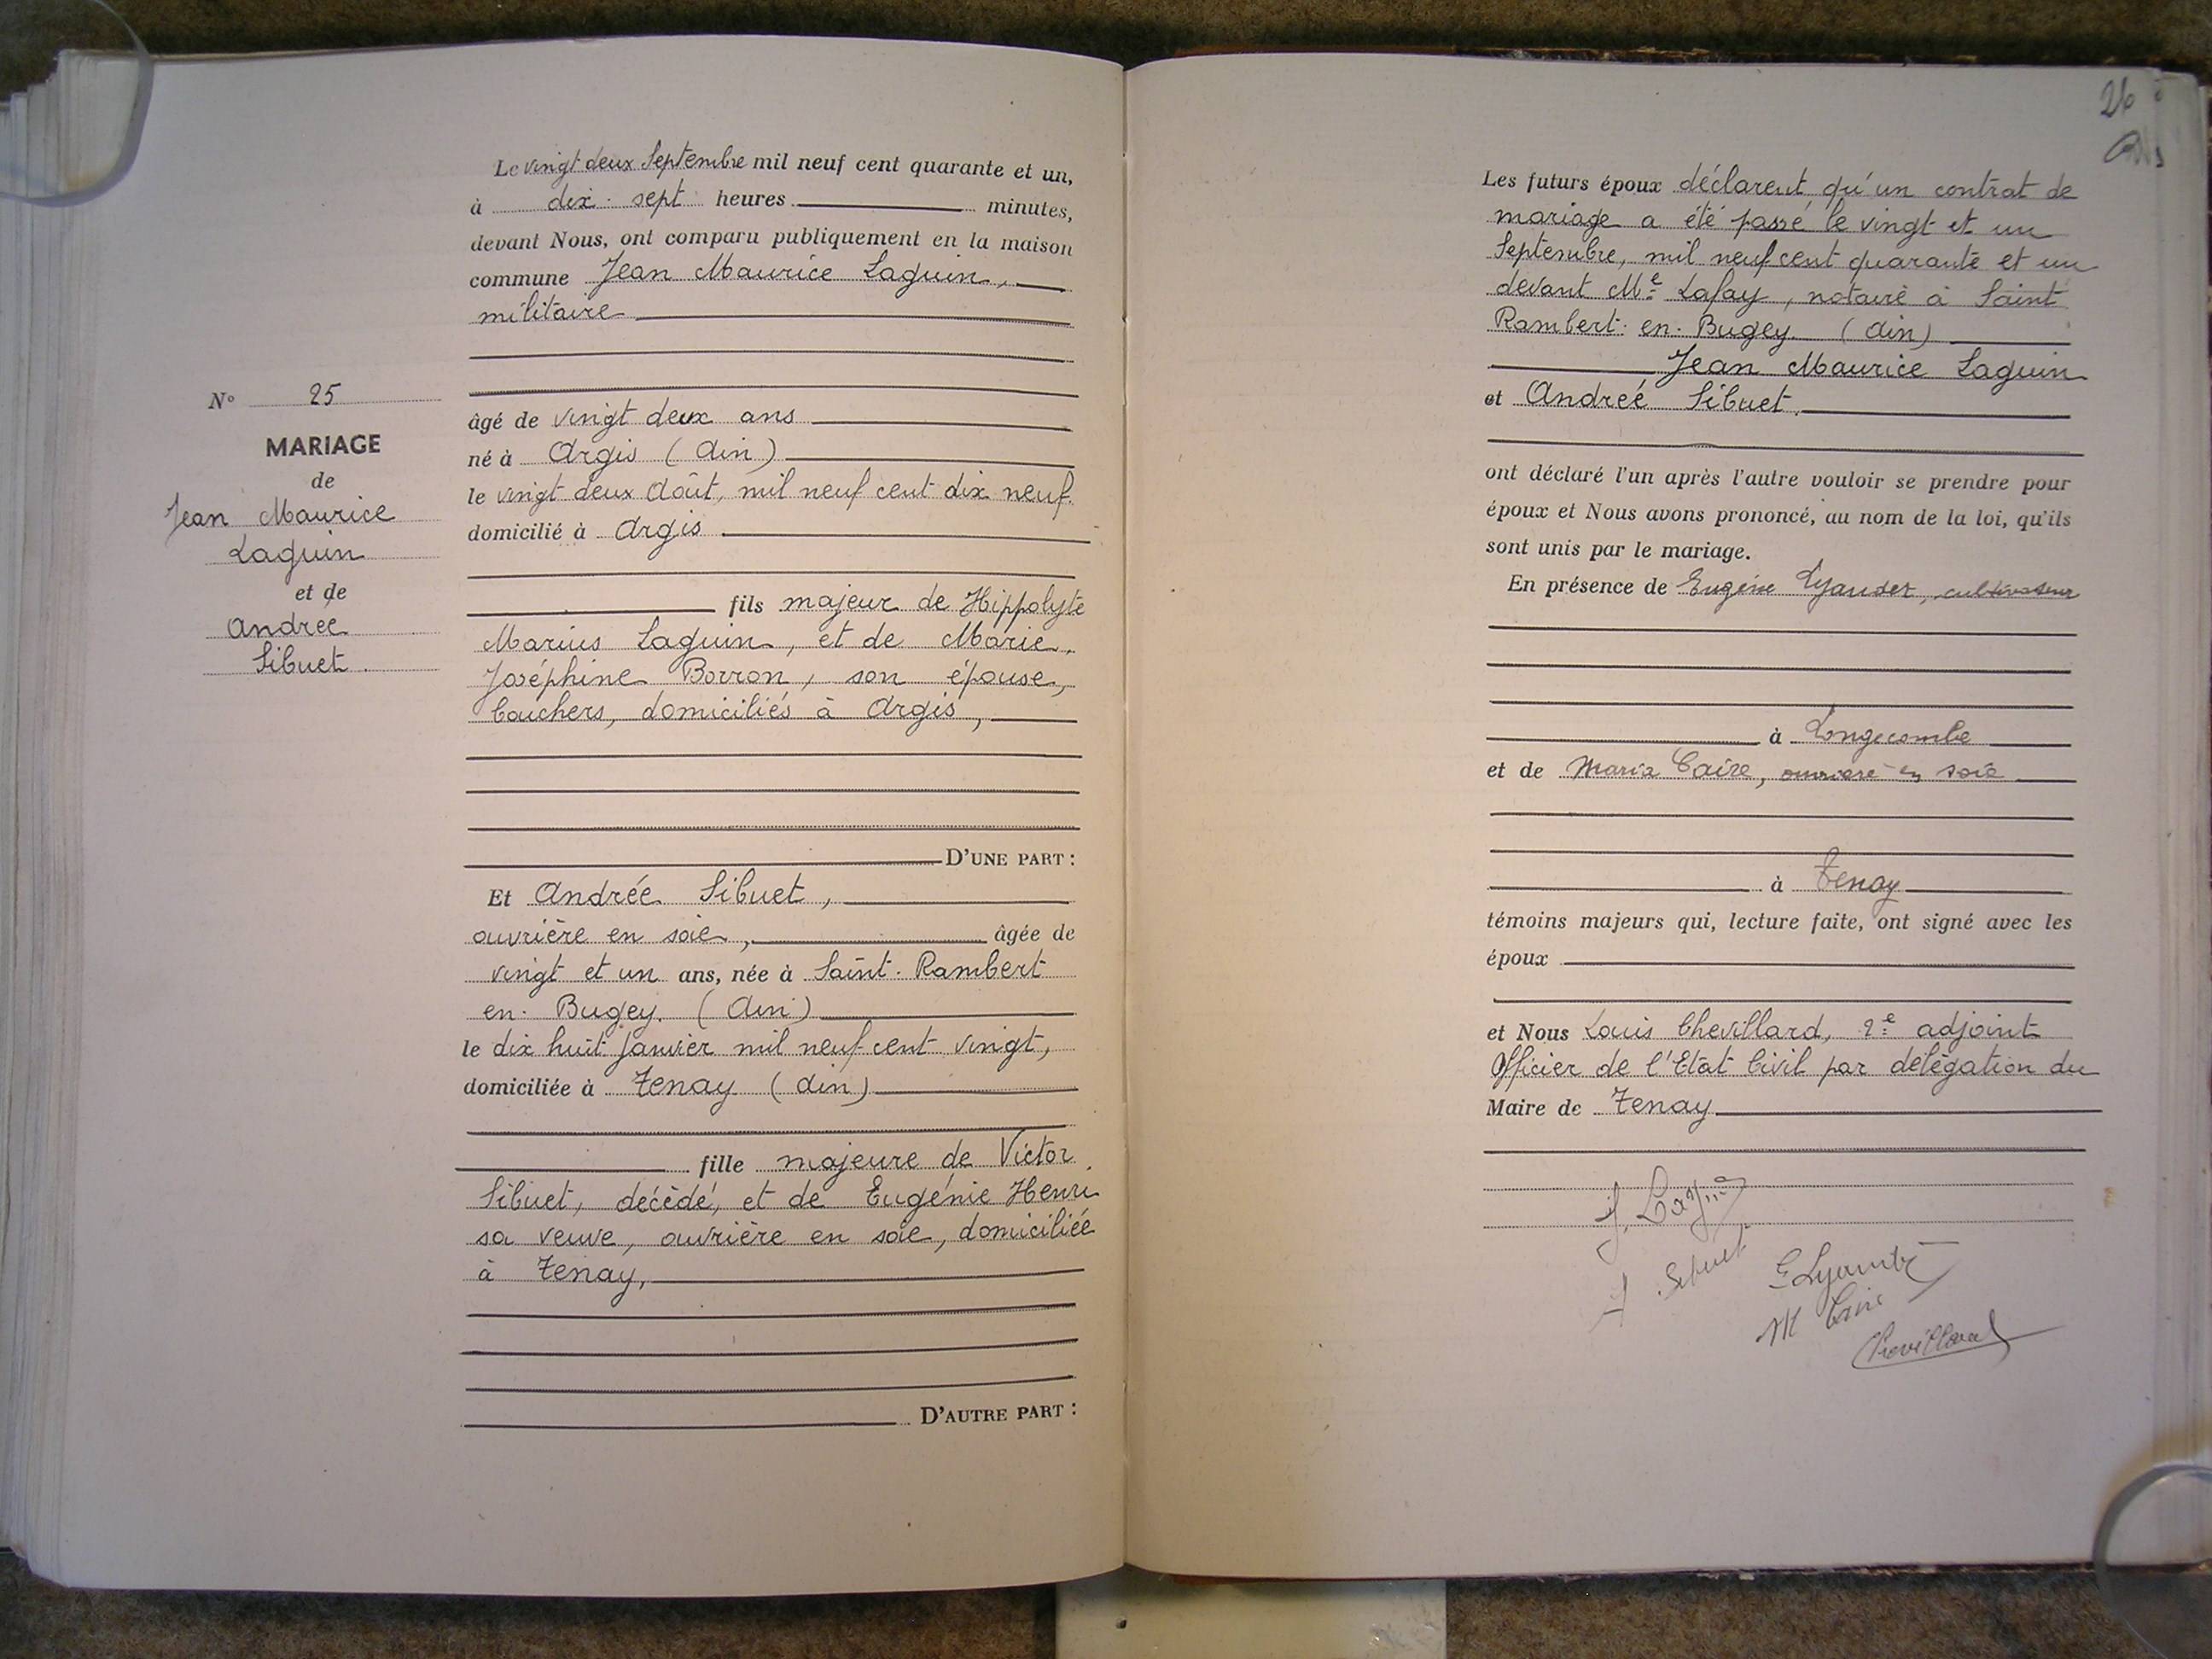 Le vingt deux Septembre mil neuf cent quarante et un,
à dix. sept heures minutes,
devant Nous, ont comparu publiquement en la maison
commune Jean Maurice Laguin,
militaire
N° 25
MARIAGE
de
Jean Maurice
Laguin
et de
Andrée
Sibuet.
âgé de vingt deux ans
né à Argis (Ain)
le vingt deux Août, mil neuf cent dix neuf.
domicilié à Argis
fils majeur de Hippolyte
Marius Laguin, et de Marie,
Joséphine Borron, son épouse,
bouchers, domiciliés à Argis,
D'UNE PART :
Et Andrée Sibuet,
ouvrière en soie, âgée de
vingt et un ans, née à Saint. Rambert
en. Bugey. (Ain)
le dix huit janvier mil neuf cent vingt,
domiciliée à Tenay (Ain)
fille majeure de Victor
Sibuet, décédé, et de Eugénie Henri
sa veuve, ouvrière en soie, domiciliée
à Tenay,
D'AUTRE PART :
26
Les futurs époux déclarent qu'un contrat de
mariage a été passé le vingt et un
Septembre, mil neuf cent quarante et un
devant Me Lafay, notaire à Saint
Rambert. en. Bugey. (Ain)
Jean Maurice Laguin
et Andrée Sibuet.
ont déclaré l'un après l'autre vouloir se prendre pour
époux et Nous avons prononcé, au nom de la loi, qu'ils
sont unis par le mariage.
En présence de Eugène cultivateur
à Longecombe
et de Maria Caire, ouvrière en soie
à Tenay
témoins majeurs qui, lecture faite, ont signé avec les
époux
et Nous Louis Chevillard, 2e adjoint
Officier de l'Etat Civil par délégation du
Maire de Tenay
J. Laguin
Sibuet
M Caire
Chevillard